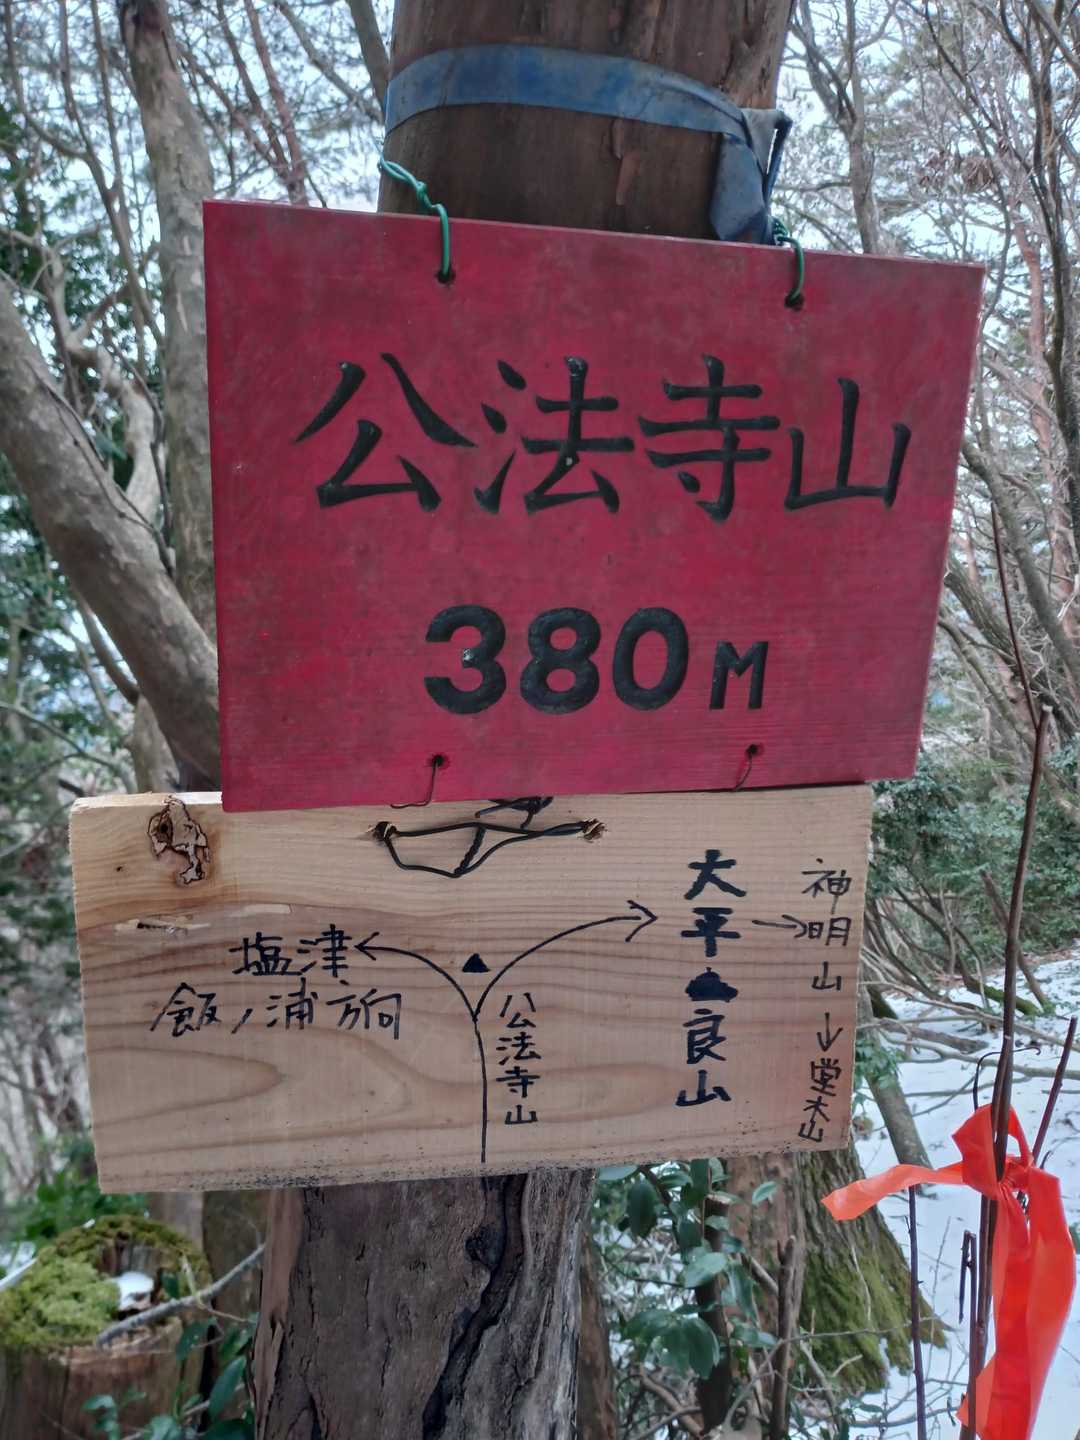 公法寺山
380M
塩津
飯ノ浦方向
公法寺山
大平良山
神明山
堂木山